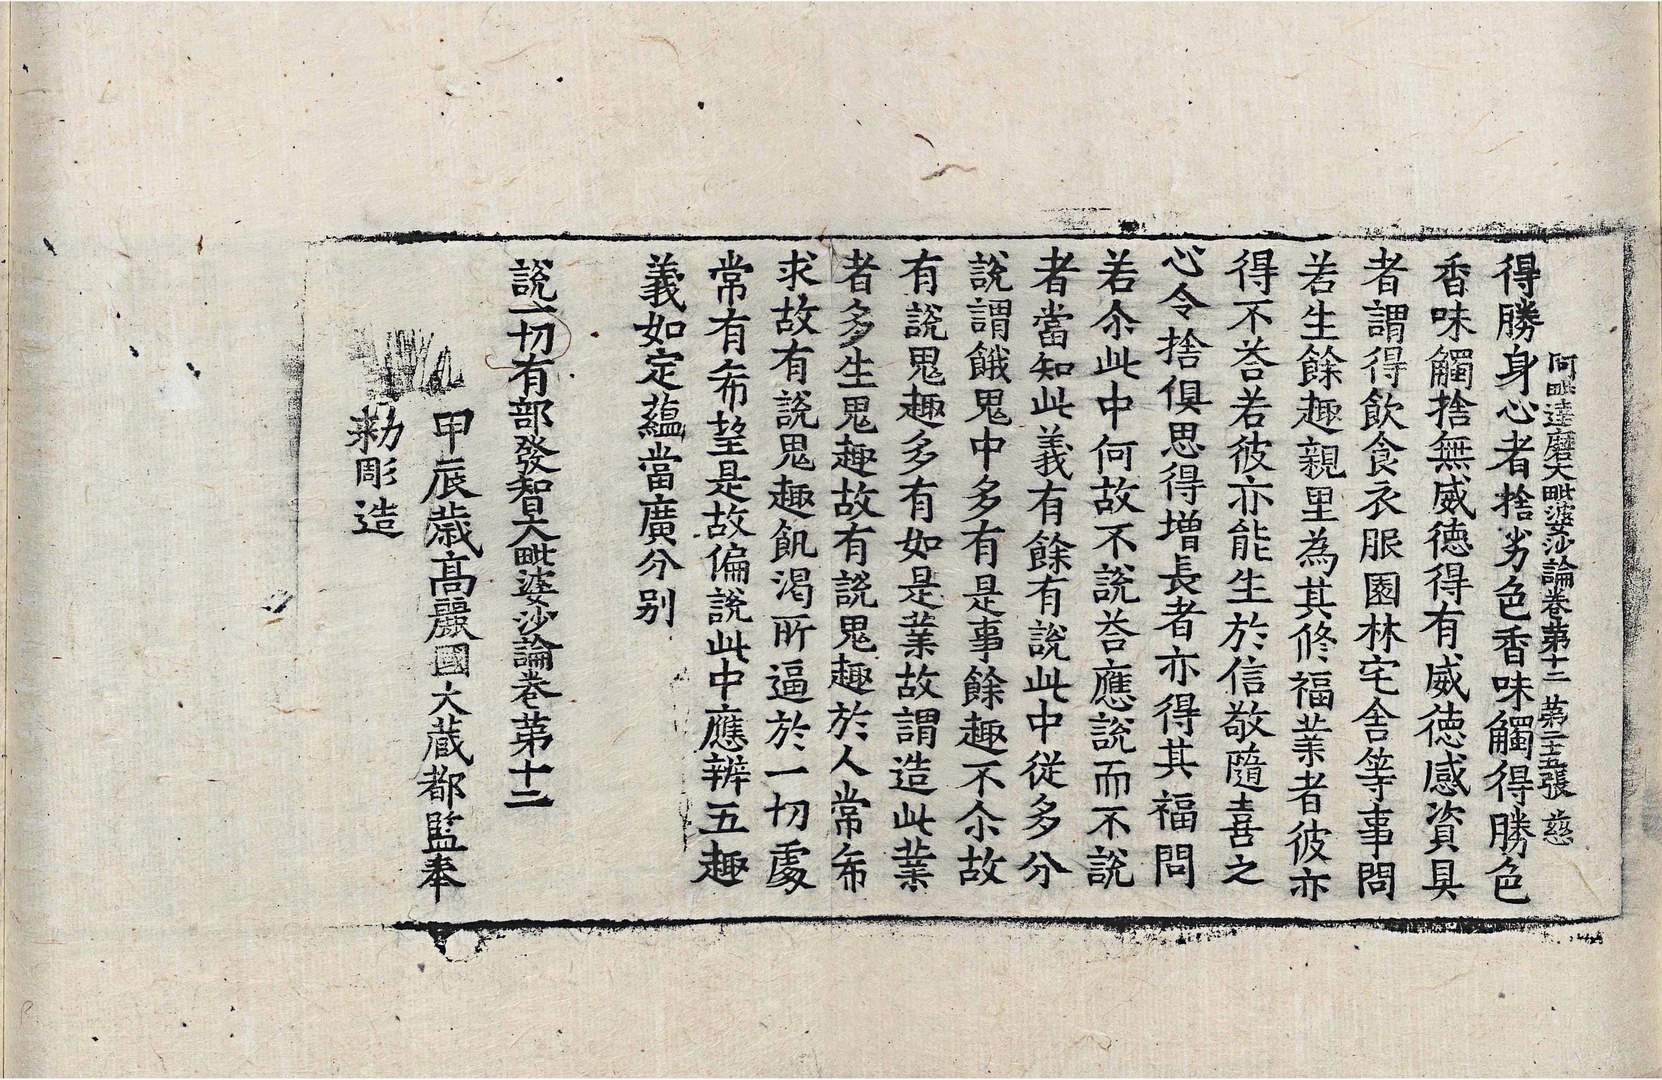 阿毗達磨大毗婆沙論卷第十二 第二十五張 慈
得勝身心者捨劣色香味觸得勝色
香味觸捨無威德得有威德感資具
者謂得飲食衣服園林宅舍等事問
若生餘趣親里為其修福業者彼亦
得不荅若彼亦能生於信敬隨喜之
心令捨俱思得增長者亦得其福問
若尒此中何故不說荅應說而不說
者當知此義有餘有說此中從多分
說謂餓鬼中多有是事餘趣不尒故
有說鬼趣多有如是業故謂造此業
者多生鬼趣故有說鬼趣於人常希
求故有說鬼趣飢渴所逼於一切處
常有希望是故偏說此中應辨五趣
義如定蘊當廣分别
說一切有部發智大毗婆沙論卷第十二
甲辰歲高麗國大藏都監奉
勑彫造